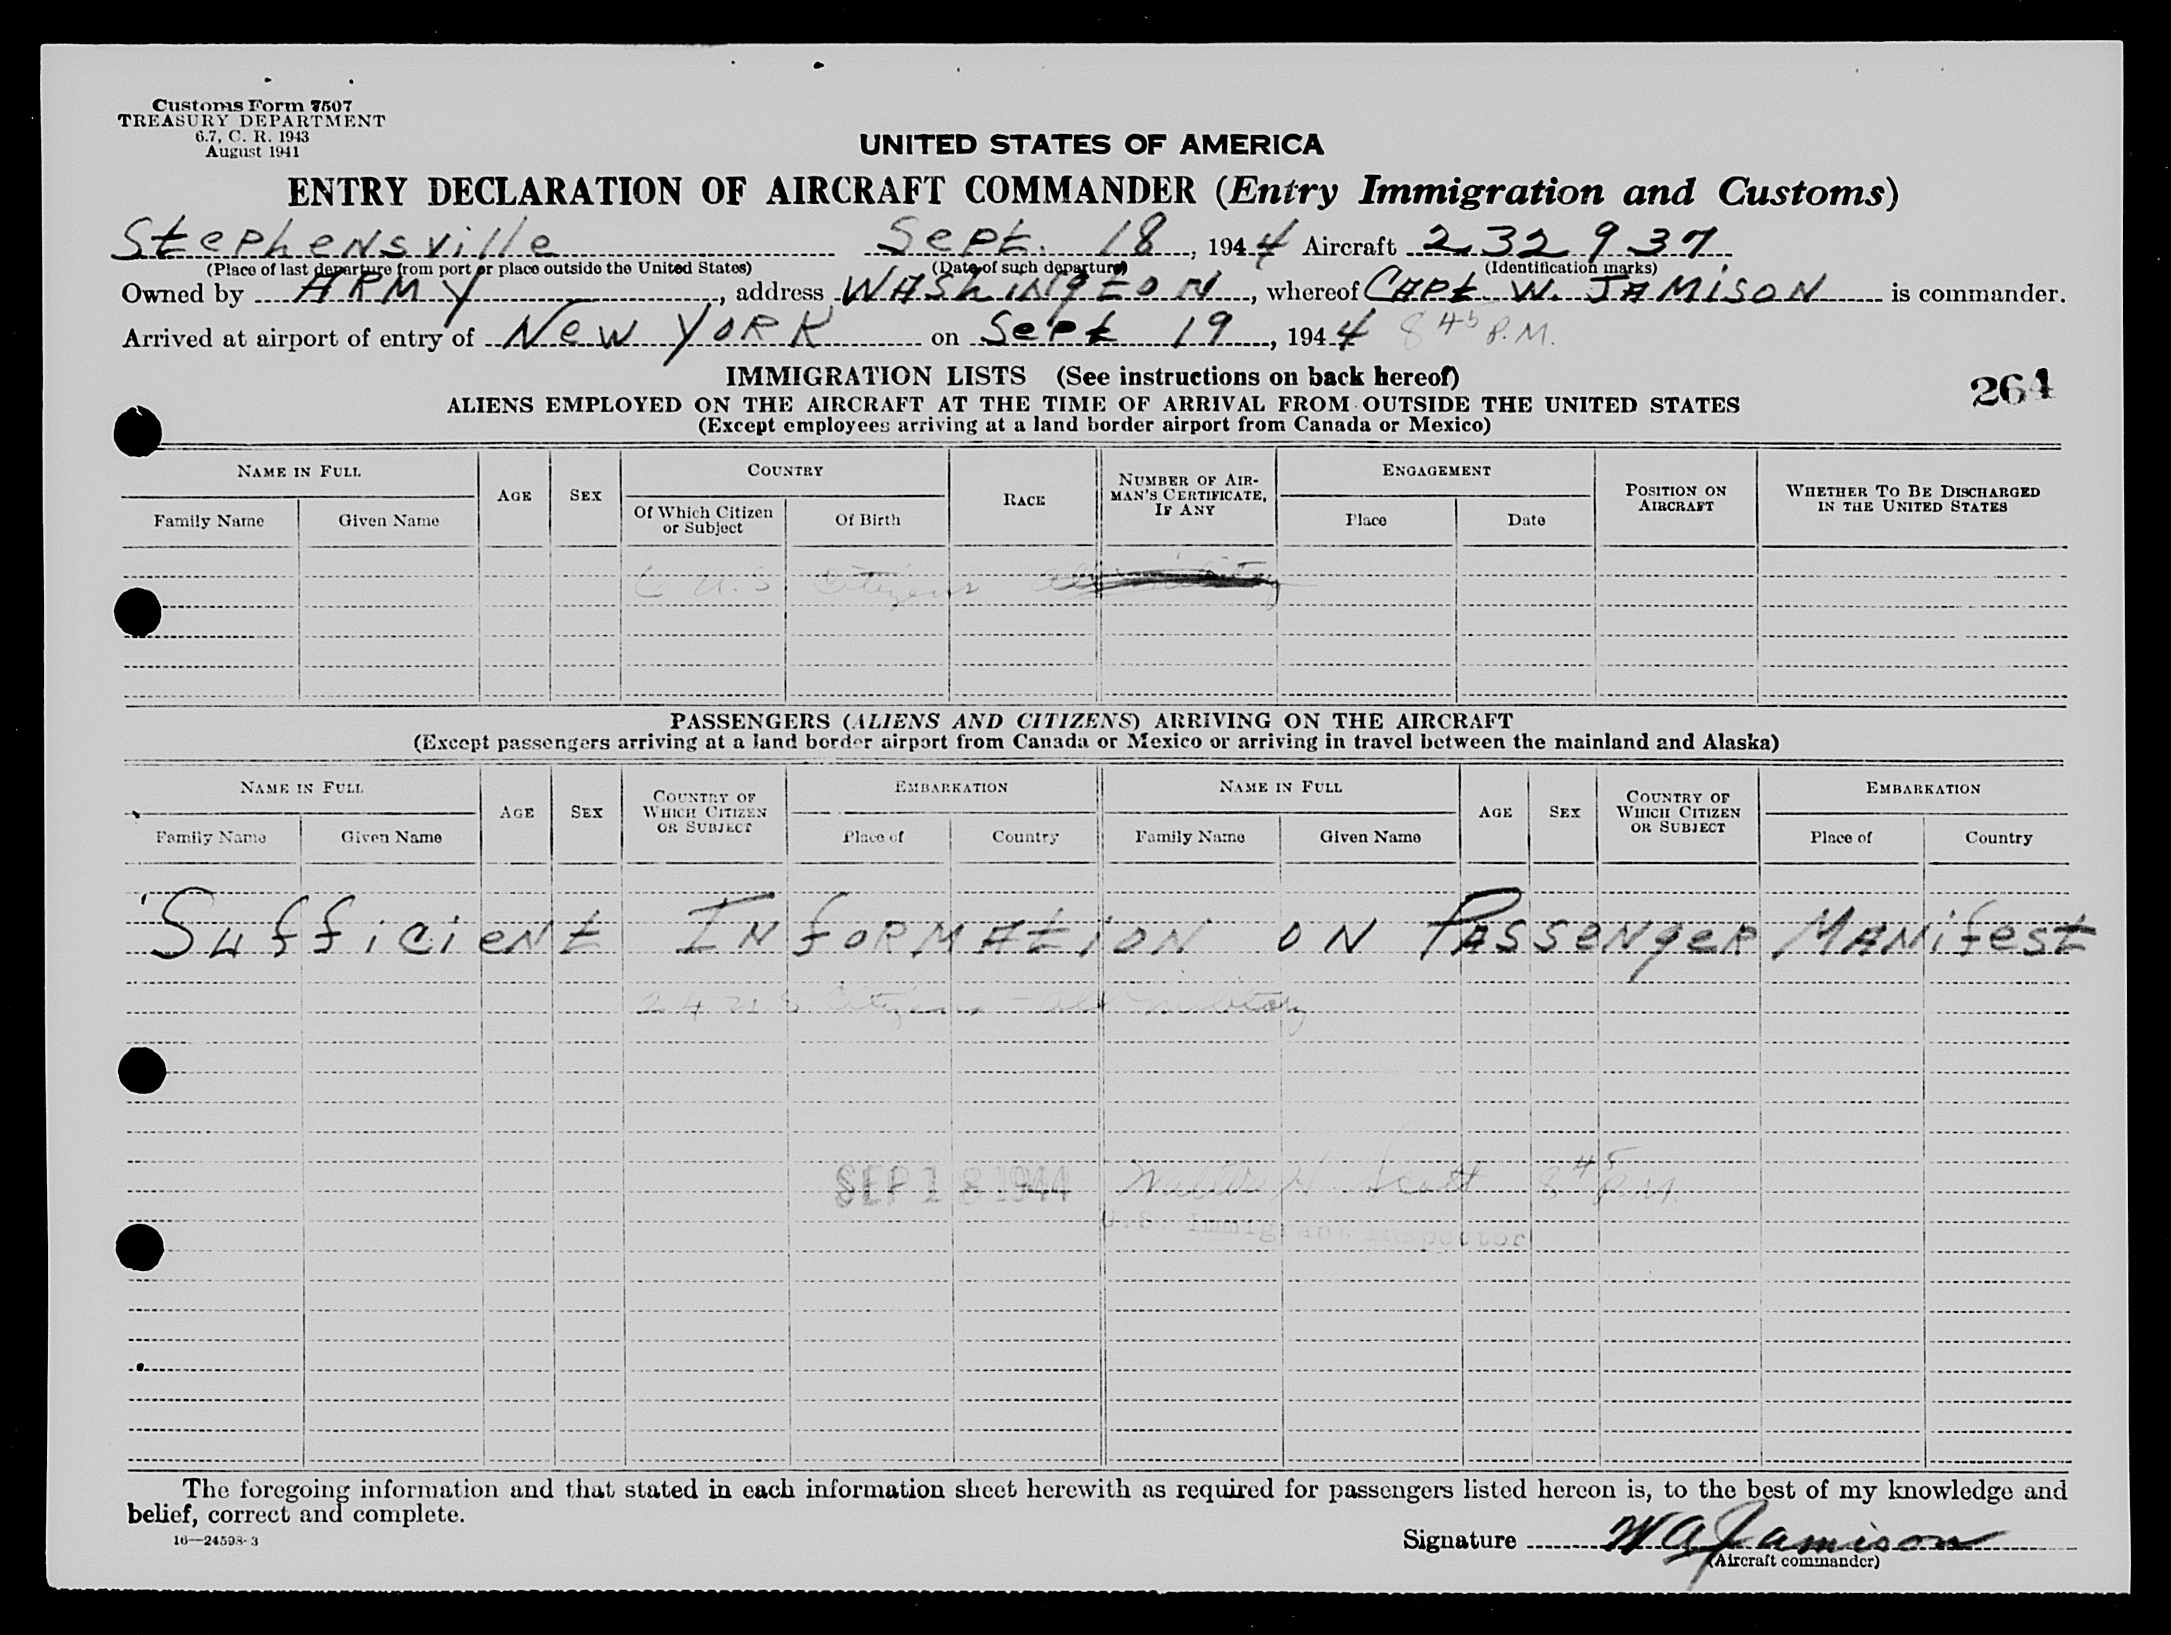 Customs Form 7507
TREASURY DEPARTMENT
6.7, C. R. 1943
August 1941
UNITED STATES OF AMERICA
ENTRY DECLARATION OF AIRCRAFT COMMANDER (Entry Immigration and Customs)
Stephensville Sept. 18, 1944 Aircraft 232937
(Place of last departure from port or place outside the United States) (Date of such departure) (Identification marks)
Owned by ARMY, address WAShINgtON, whereof CAPt W. JAMiSON is commander.
Arrived at airport of entry of New YORK on Sept 19, 1944 8 45 P.M.
IMMIGRATION LISTS (See instructions on back hereof)
264
ALIENS EMPLOYED ON THE AIRCRAFT AT THE TIME OF ARRIVAL FROM OUTSIDE THE UNITED STATES
(Except employees arriving at a land border airport from Canada or Mexico)
NAME IN FULL AGE SEX COUNTRY RACE NUMBER OF AIRMAN'S CERTIFICATE, IF ANY ENGAGEMENT POSITION ON AIRCRAFT WHETHER TO BE DISCHARGED IN THE UNITED STATES
Family Name Given Name Of Which Citizen or Subject Of Birth Place Date
U.S. Citizens
PASSENGERS (ALIENS AND CITIZENS) ARRIVING ON THE AIRCRAFT
(Except passengers arriving at a land border airport from Canada or Mexico or arriving in travel between the mainland and Alaska)
NAME IN FULL AGE SEX COUNTRY OF WHICH CITIZEN OR SUBJECT EMBARKATION NAME IN FULL AGE SEX COUNTRY OF WHICH CITIZEN OR SUBJECT EMBARKATION
Family Name Given Name Place of Country Family Name Given Name Place of Country
Sufficient Information on Passenger Manifest
24 U S Citizens - all military
SEP 18 1944 Scott 8 45 P.M.
U.S. Immigrant Inspector
The foregoing information and that stated in each information sheet herewith as required for passengers listed hereon is, to the best of my knowledge and
belief, correct and complete.
16—24598-3
Signature W A Jamison
(Aircraft commander)